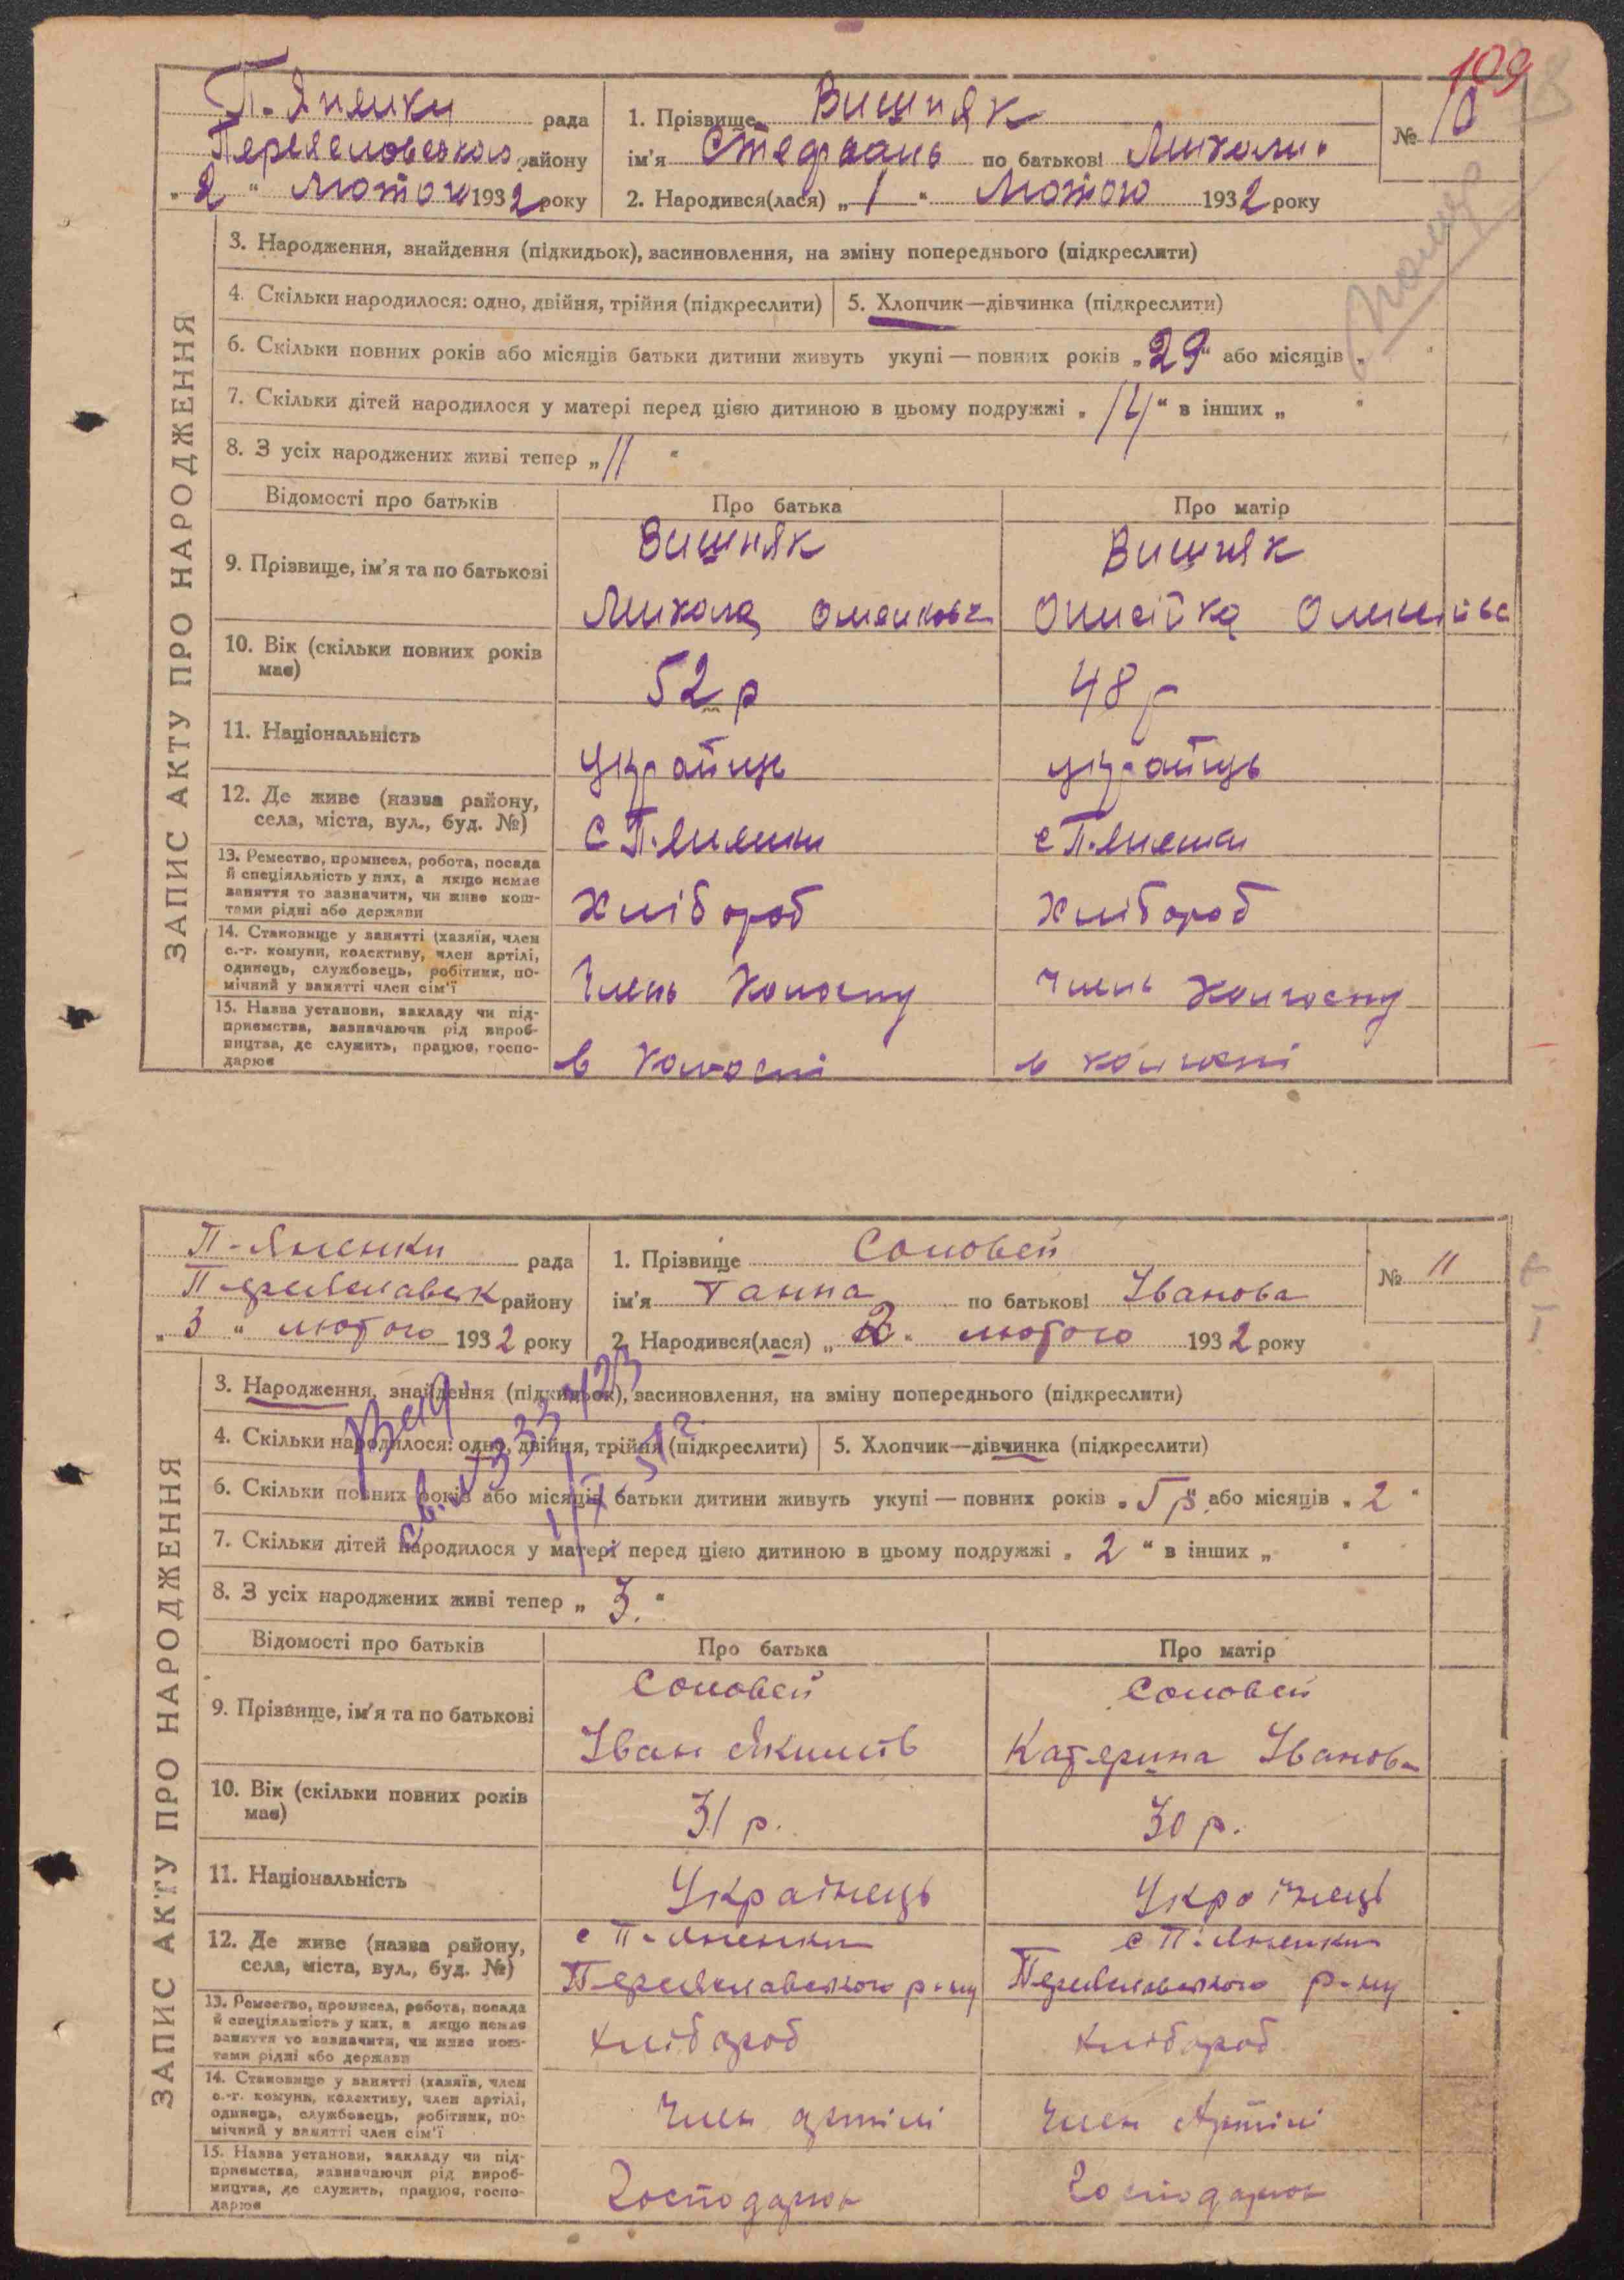 109
П. Яненки рада
Переяславського району
„2“ Лютого 1932 року
1. Прізвище Вишняк
ім'я Стефань по батькові Микол.
2. Народився(лася) „1“ Лютого 1932 року
№ 10
ЗАПИС АКТУ ПРО НАРОДЖЕННЯ
3. Народження, знайдення (підкидьок), засиновлення, на зміну попереднього (підкреслити)
4. Скільки народилося: одно, двійня, трійня (підкреслити) 5. Хлопчик—дівчинка (підкреслити)
6. Скільки повних років або місяців батьки дитини живуть укупі — повних років „29“ або місяців „ “
7. Скільки дітей народилося у матері перед цією дитиною в цьому подружжі „14“ в інших „ “
8. З усіх народжених живі тепер „11“
Відомості про батьків Про батька Про матір
9. Прізвище, ім'я та по батькові
Вишняк Вишняк
Микола
10. Вік (скільки повних років має)
52 р 48 р
11. Національність
українць українць
12. Де живе (назва району, села, міста, вул., буд. №)
с П. Яненки с П. Яненки
13. Ремество, промисел, робота, посада й спеціяльність у них, а якщо немає заняття то зазначити, чи живе коштами рідні або держави
Хлібороб Хлібороб
14. Становище у занятті (хазяїн, член с.-г. комуни, колективу, член артілі, одинець, службовець, робітник, помічний у занятті член сім'ї
Члень Колгоспу Члень Колгоспу
15. Назва установи, закладу чи підприємства, зазначаючи рід виробництва, де служить, працює, господарює
в Колгоспі в колгоспі
П-Яненки рада
Переяславськ району
„3“ лютого 1932 року
1. Прізвище Соловей
ім'я Ганна по батькові Іванова
2. Народився(лася) „2“ лютого 1932 року
№ 11
ЗАПИС АКТУ ПРО НАРОДЖЕННЯ
3. Народження, знайдення (підкидьок), засиновлення, на зміну попереднього (підкреслити)
4. Скільки народилося: одно, двійня, трійня (підкреслити) 5. Хлопчик—дівчинка (підкреслити)
6. Скільки повних років або місяців батьки дитини живуть укупі — повних років „5 р“ або місяців „2“
7. Скільки дітей народилося у матері перед цією дитиною в цьому подружжі „2“ в інших „ “
8. З усіх народжених живі тепер „3.“
Відомості про батьків Про батька Про матір
9. Прізвище, ім'я та по батькові
Соловей Соловей
Іван Якимів Катерина Іванов-
10. Вік (скільки повних років має)
31 р. 30 р.
11. Національність
Українець Українець
12. Де живе (назва району, села, міста, вул., буд. №)
с П-Яненки с П-Яненки
Переяславського р-ну Переяславського р-ну
13. Ремество, промисел, робота, посада й спеціяльність у них, а якщо немає заняття то зазначити, чи живе коштами рідні або держави
хлібороб хлібороб
14. Становище у занятті (хазяїн, член с.-г. комуни, колективу, член артілі, одинець, службовець, робітник, помічний у занятті член сім'ї
член артілі член Артілі
15. Назва установи, закладу чи підприємства, зазначаючи рід виробництва, де служить, працює, господарює
Господарює Господарює